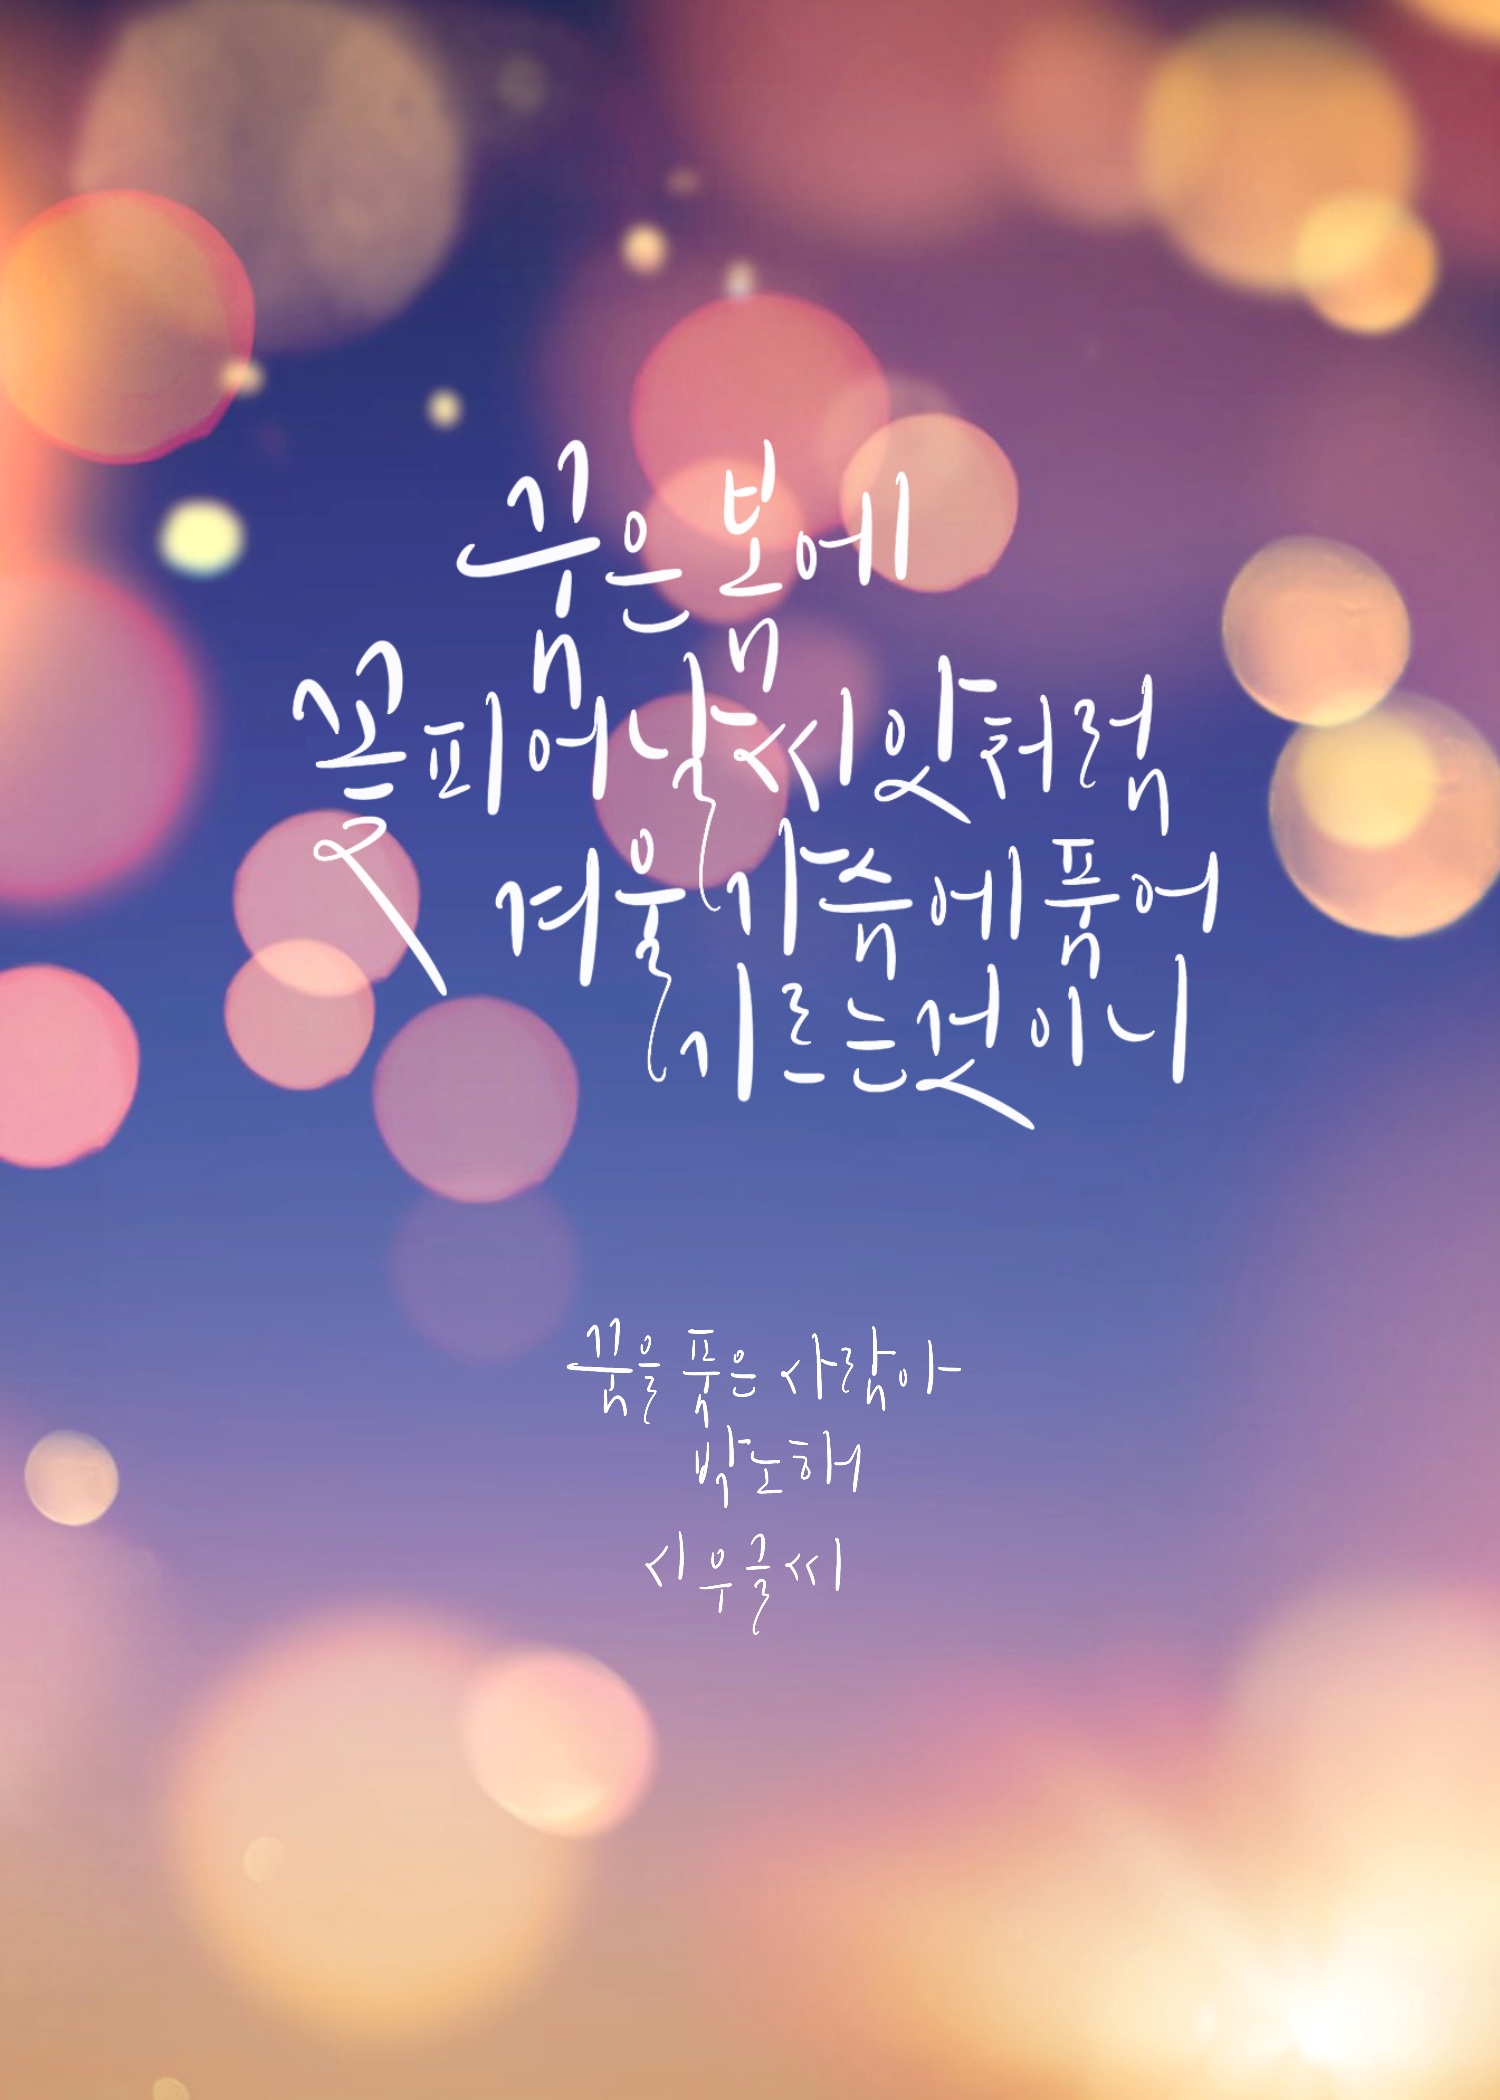 꿈은 봄에
꽃피어날 씨앗처럼
겨울 가슴에 품어
기르는 것이니
꿈을 품은 사람아
박노해
시우글씨